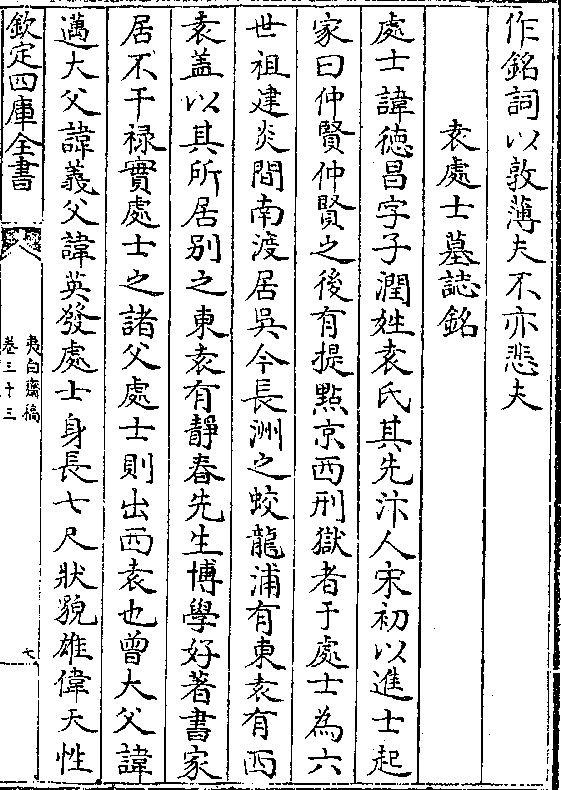 作銘詞以敦薄夫不亦悲夫
袁處士墓誌銘
處士諱德昌字子潤姓袁氏其先汴人宋初以進士起
家曰仲賢仲賢之後有提點京西刑獄者于處士為六
世祖建炎間南渡居吳今長洲之蛟龍浦有東袁有西
袁盖以其所居别之東袁有靜春先生博學好著書家
居不干禄實處士之諸父處士則出西袁也曾大父諱
邁大父諱義父諱英發處士身長七尺狀貌雄偉天性
欽定四庫全書
夷白齋稿
卷三十三
七